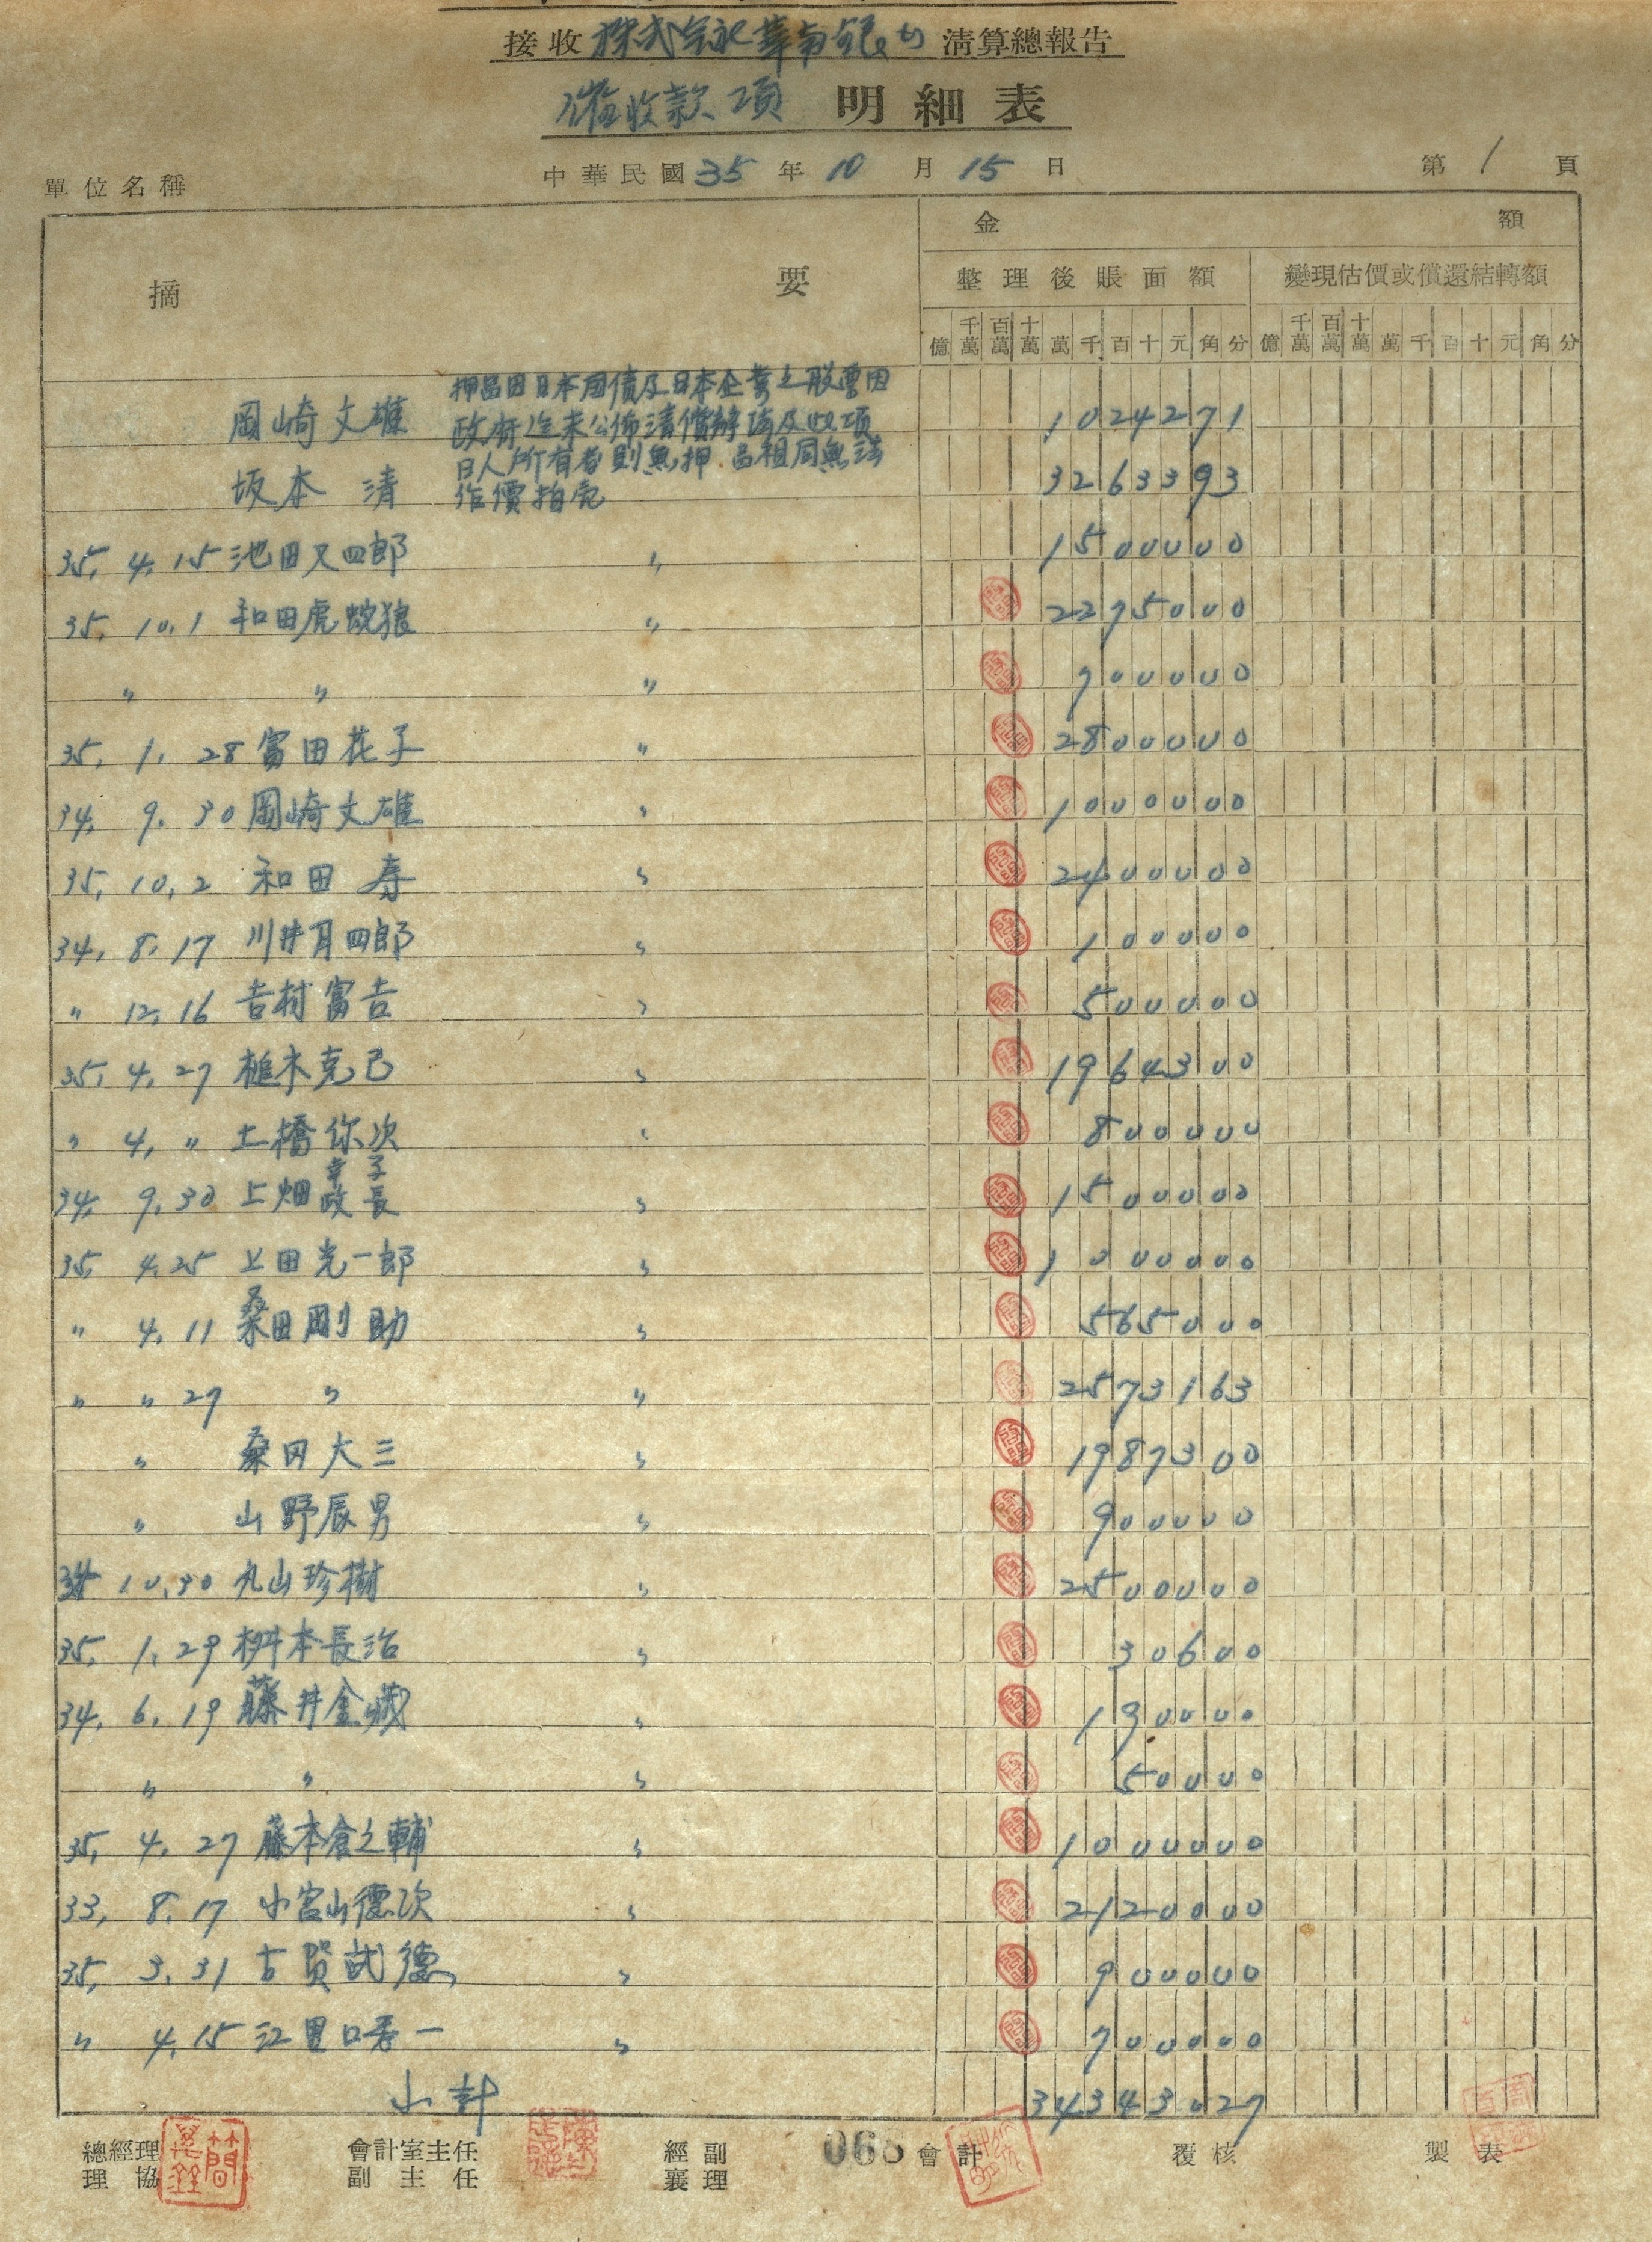 接收 株式会社華南銀行 清算總報告
催收款項 明細表
單位名稱 中華民國 35 年 10 月 15 日 第 1 頁
摘 要 金 額
整理後賬面額 變現估價或償還結轉額
億 千萬 百萬 十萬 萬 千 百 十 元 角 分 億 千萬 百萬 十萬 萬 千 百 十 元 角 分
岡崎文雄 押品因日本国債及日本企業之股票因 政府迄未公佈清償辦法及此項 1024271
坂本 清 日人所有者則無押品租同無法 作價拍売 3263393
35, 4, 15 池田又四郎 〃 1500000
35, 10, 1 和田虎 狼 〃 2275000
〃 〃 〃 700000
35, 1, 28 富田花子 〃 2800000
34, 9, 30 岡崎文雄 〃 1000000
35, 10, 2 和田 寿 〃 2400000
34, 8, 17 川井 四郎 〃 100000
〃 12, 16 吉村富吉 〃 500000
35, 4, 27 植木克己 〃 1964300
〃 4, 〃 土橋弥次 〃 800000
34, 9, 30 上畑 幸子 政長 〃 1500000
35, 4, 25 上田光一郎 〃 10000000
〃 4, 11 桑田剛助 〃 565000
〃 〃 27 〃 〃 2573163
〃 桑田大三 〃 1987300
〃 山野辰男 〃 900000
34 10, 30 丸山珍樹 〃 2500000
35, 1, 29 桝本長治 〃 30600
34, 6, 19 藤井金蔵 〃 190000
〃 〃 〃 50000
35, 4, 27 藤本倉之輔 〃 1000000
33, 8, 17 小宮山德次 〃 2120000
35, 3, 31 古賀武德 〃 900000
〃 4, 15 江里口寿一 〃 700000
小計 34343027
總經理 會計室主任 經副 068 會計 覆核 製表
理協 副主任 襄理